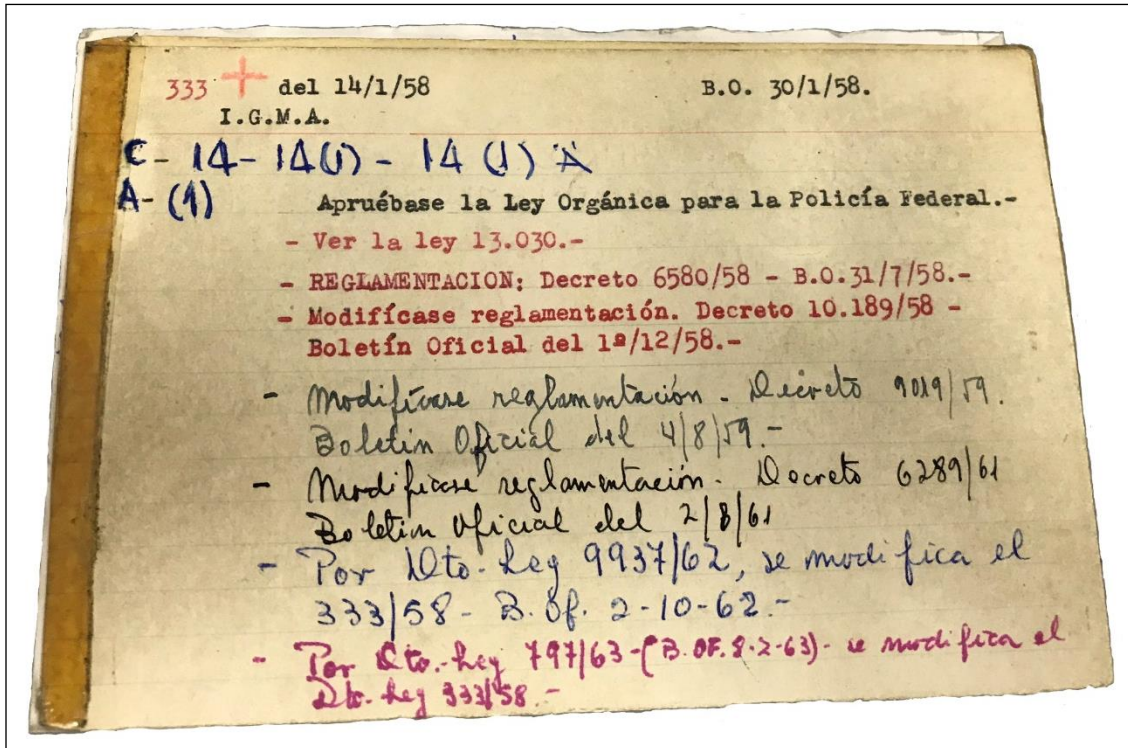 333 + del 14/1/58 B.O. 30/1/58.
I.G.M.A.
C- 14- 14(1) - 14 (1) A
A- (1) Apruébase la Ley Orgánica para la Policía Federal.-
- Ver la ley 13.030.-
- REGLAMENTACION: Decreto 6580/58 - B.O.31/7/58.-
- Modifícase reglamentación. Decreto 10.189/58 -
Boletín Oficial del 1º/12/58.-
- Modifícase reglamentación. Decreto 9019/59.
Boletin Oficial del 4/8/59.-
- Modificase reglamentación. Decreto 6289/61
Boletin Oficial del 2/8/61
- Por Dto-Ley 9937/62, se modifica el
333/58 - B. Of. 2-10-62.-
- Por Dto.-Ley 797/63-(B.OF. 8-2-63)- se modifica el
Dto. Ley 333/58.-